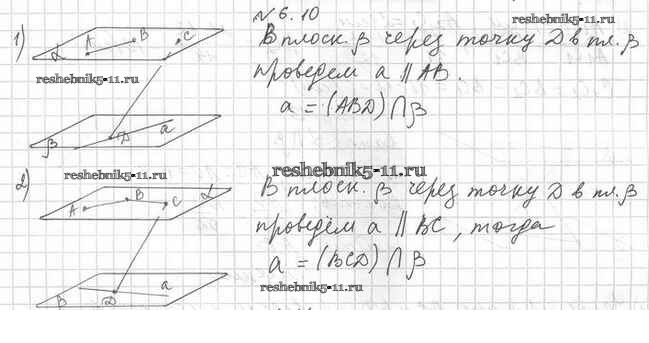 № 6.10
reshebnik5-11.ru
1)
A B C α
β D a
В плоск. β через точку D в пл. β
проведем a ∥ AB.
a = (ABD) ⋂ β
reshebnik5-11.ru
reshebnik5-11.ru
reshebnik5-11.ru
2)
A B C α
β D a
В плоск. β через точку D в пл. β
проведём a ∥ BC, тогда
a = (BCD) ⋂ β
reshebnik5-11.ru
reshebnik5-11.ru